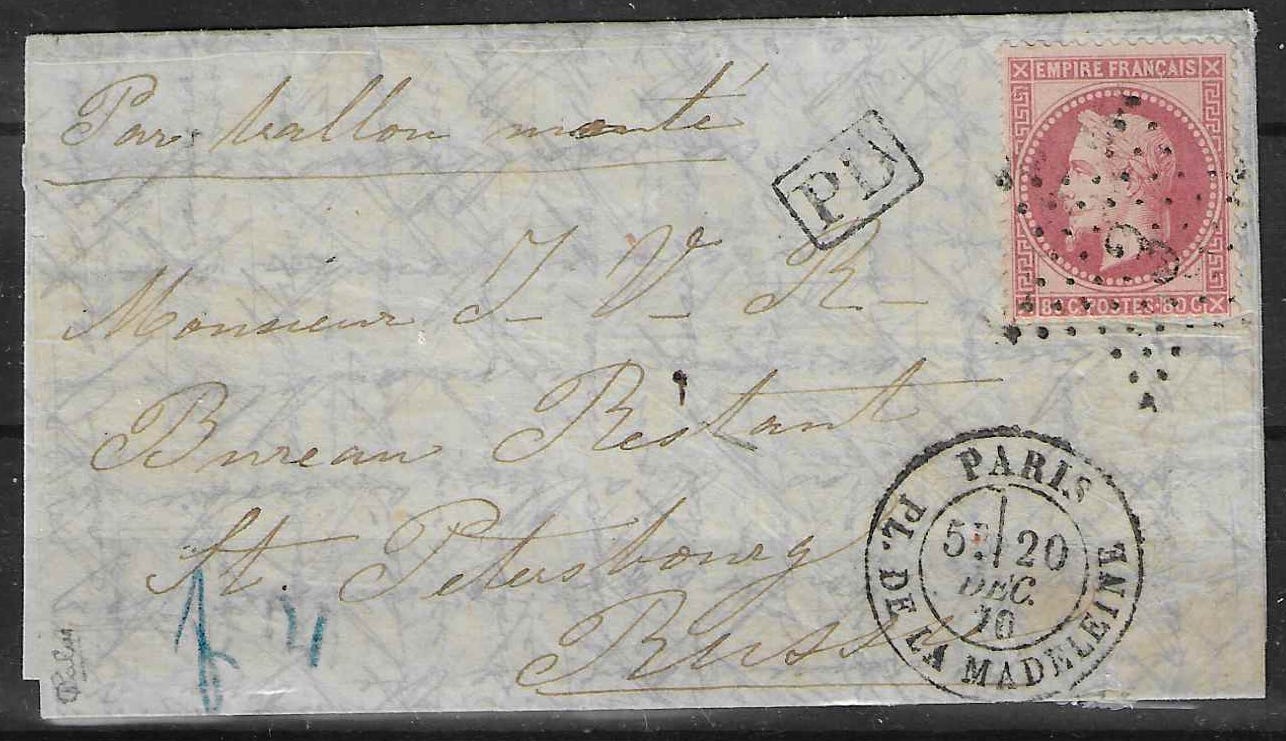 Par ballon monté
PD
EMPIRE FRANÇAIS
80 C POSTES 80 C
Monsieur J - V - R -
Bureau Restant
St. Petersbourg
Russ
PARIS
5E 20
DEC.
70
PL. DE LA MADELEINE